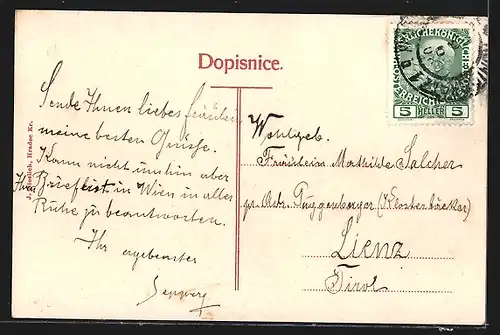 Dopisnice.
Sende Ihnen liebes Fräulein
meine besten Grüsse.
Kann nicht umhin aber
Ihr Brieflein in Wien in aller
Ruhe zu beantworten.
Ihr ergebenster
Wohlgeb.
Fräulein Mathilde Salcher
pr. Adr. Puggenberger (Klosterbäcker)
Lienz
Tirol
5 HELLER 5
Hradec Kr.